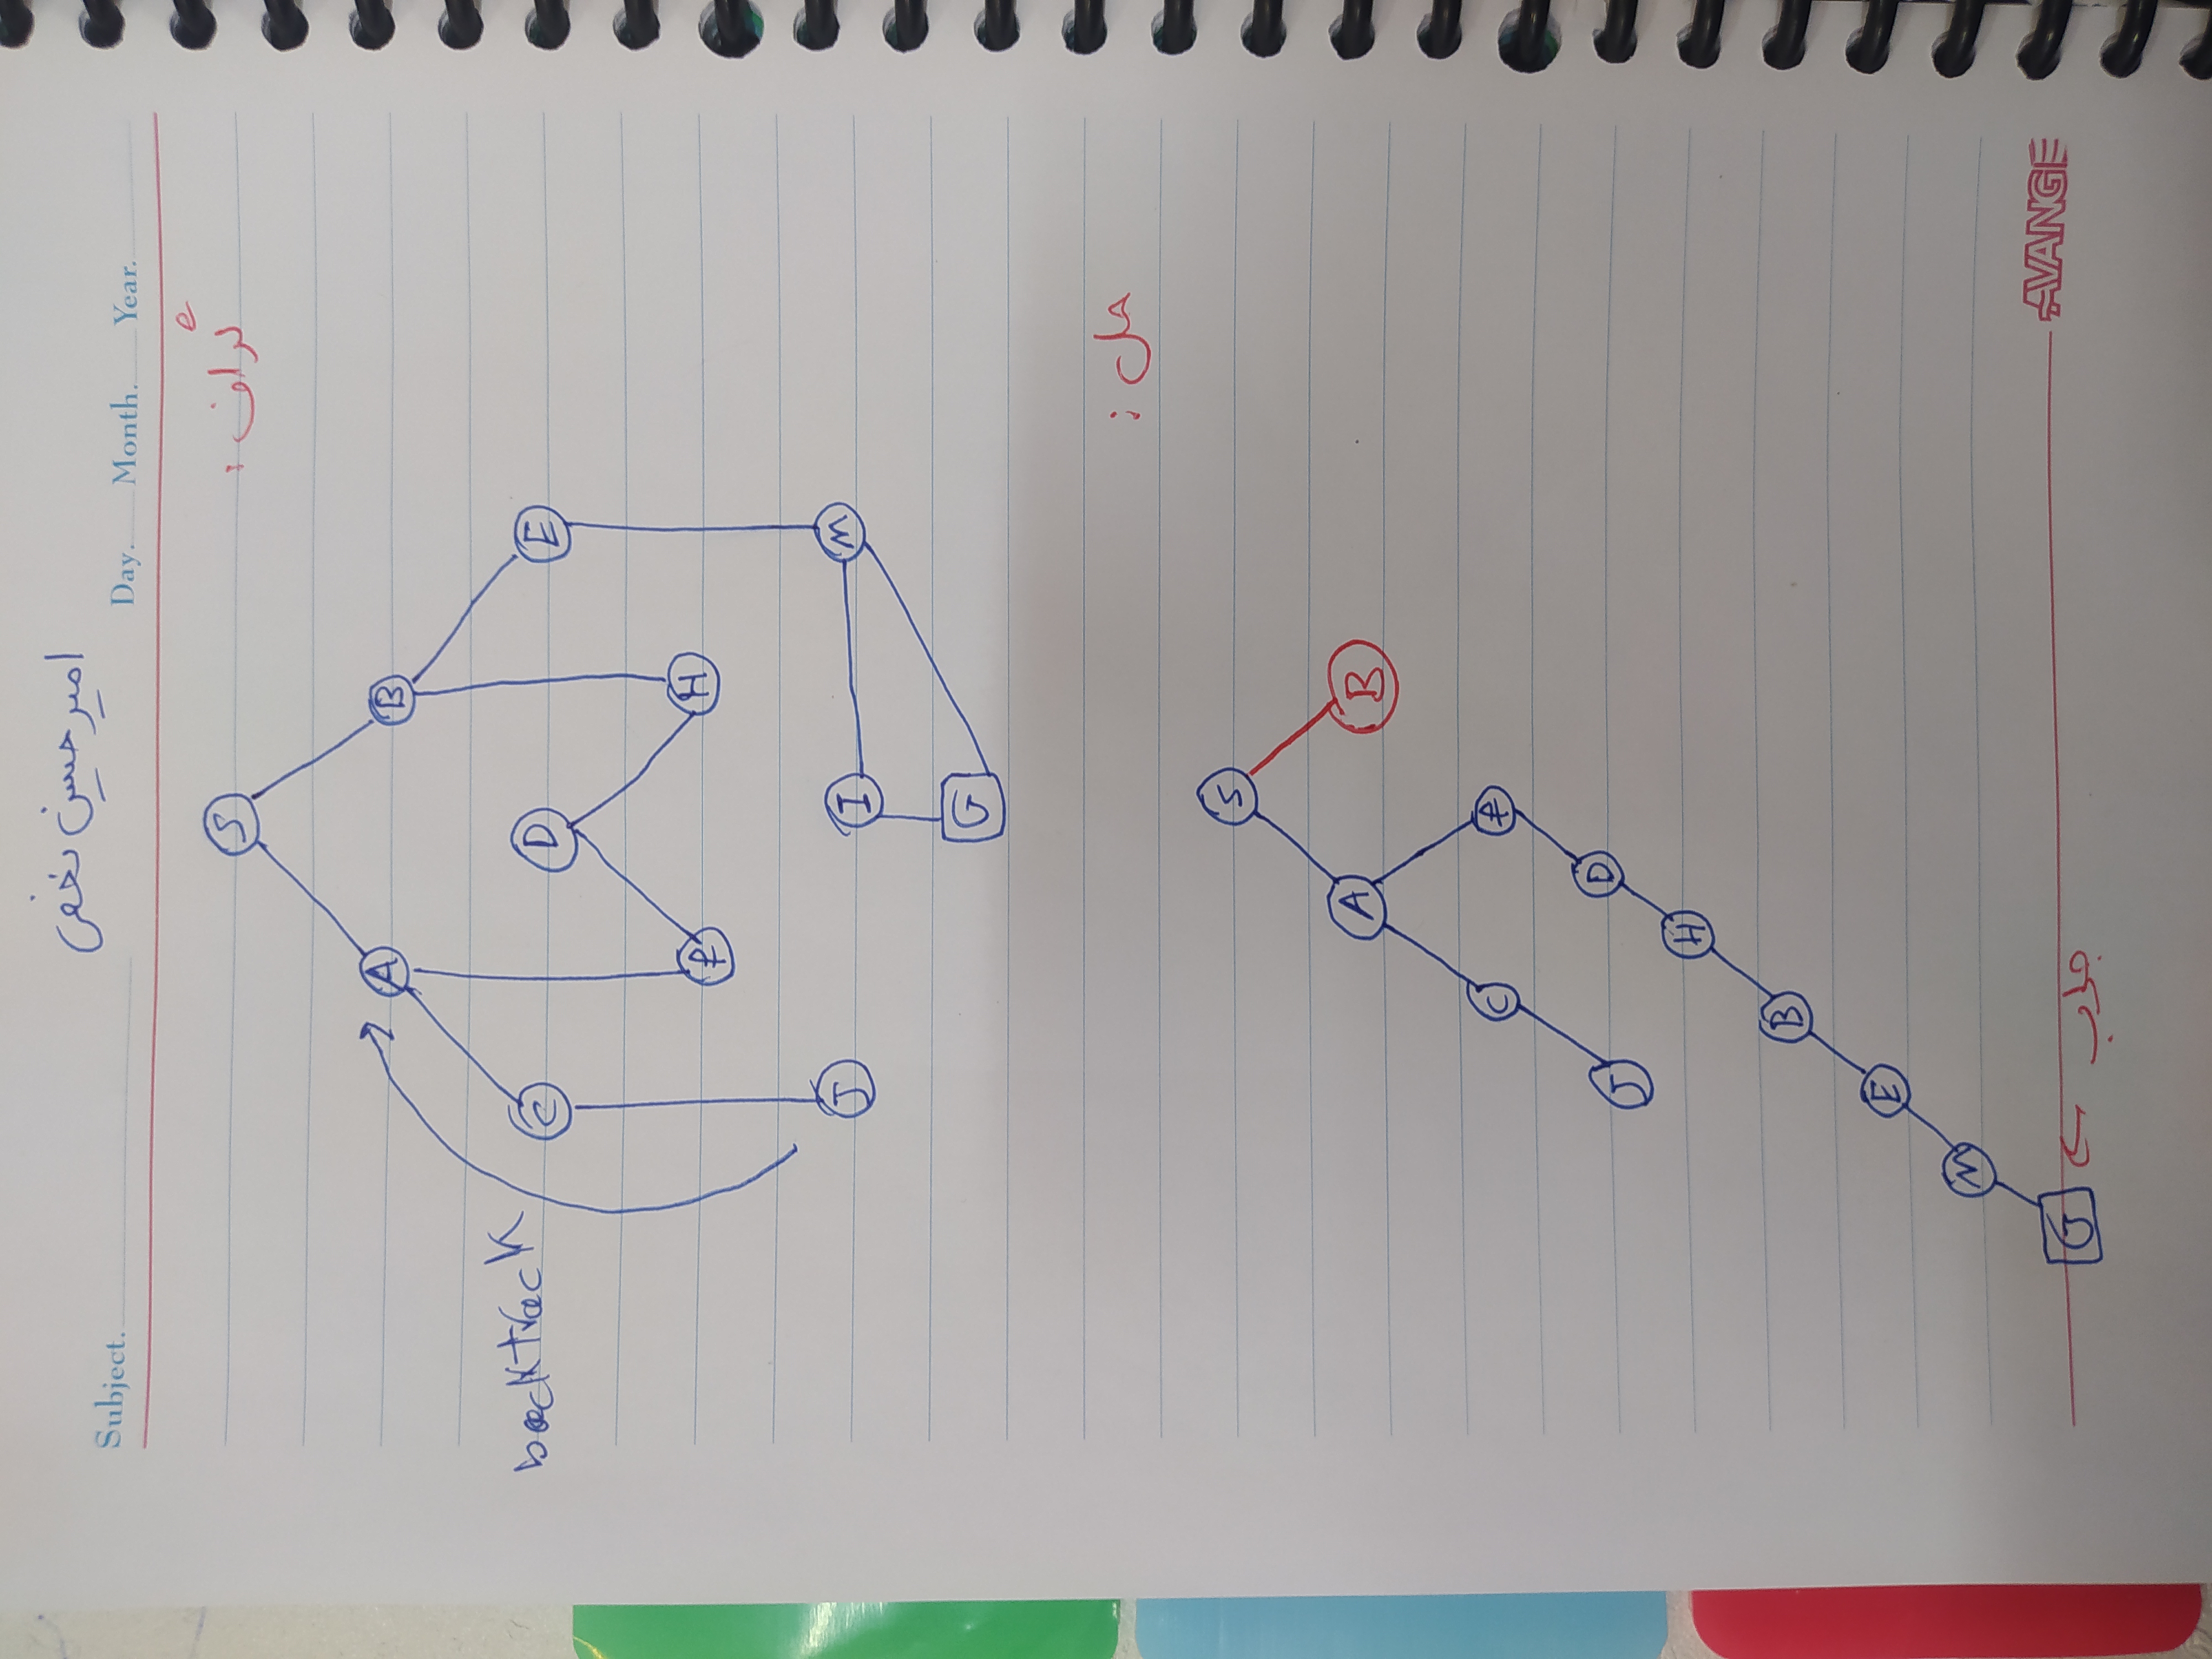 امیرحسین نخفی
Subject.
Day. Month. Year.
گراف :
S
A B
backtrack
C D E
F H
J I M
G
حل :
S
A B
C F
J D
H
B
E
M
G ← جواب
AVANGE